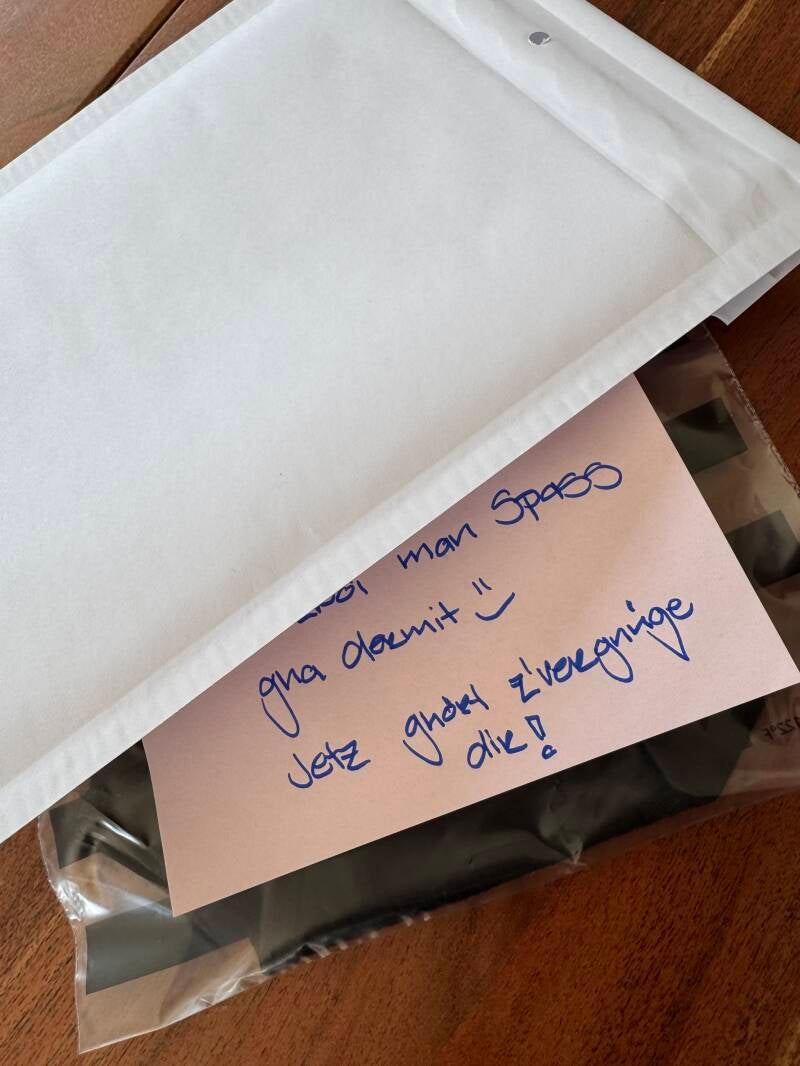 mau Spass
gha dermit
Jetz ghört z'vergnüge
dir!